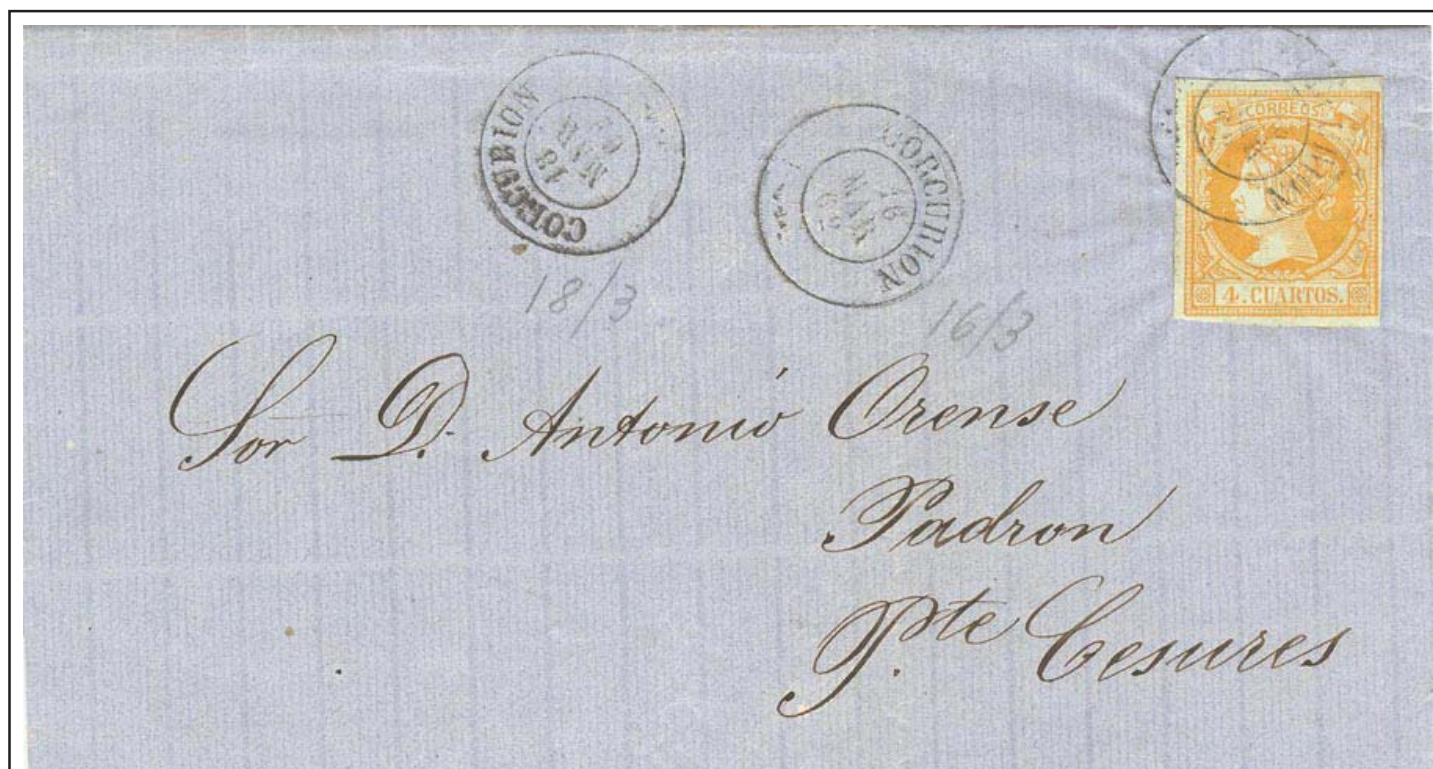 CORCUBION
18
MAR
62
CORCUBION
16
MAR
62
CORREOS
4. CUARTOS.
18/3
16/3
Sor D. Antonio Orense
Padron
Pte Cesures